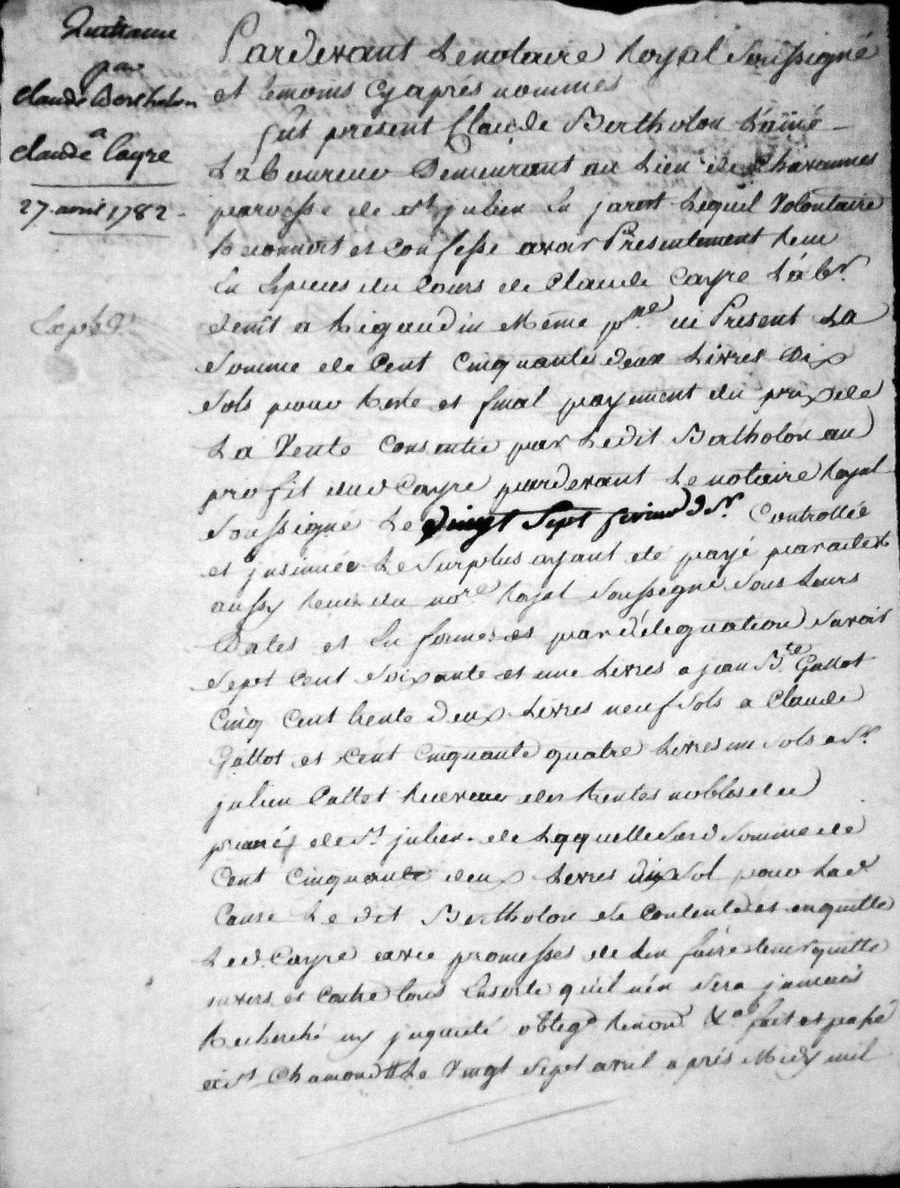 Quittance
par
Claude Bertholon
a
Claude Cayre
27 avril 1782
Pardevant Le notaire Royal Soussigné
et temoins Cyaprés nommés
fut présent Claude Bertholon L'ainé
Laboureur Demeurant au Lieu de Chavannes
paroisse de st julien En jarest Lequel Volontaire
Reconnoit et confesse avoir Presentement Recu
En Especes du Cours de Claude Cayre Lab.r
demt a Rigaudin Même p.sse ici Present La
Somme de Cent Cinquante deux Livres Dix
Sols pour Reste et final payement du prix de
La Vente Consentie par Ledit Bertholon au
profit dud Cayre pardevant Le notaire Royal
Soussigné Le vingt Sept fevrier d.r Controllée
et Insinuée Le Surplus ayant été payé par actes
aussy Recus du no.re Royal Soussigné Sous Leurs
Dates et En formes et par délégation Savoir
Sept Cent Soixante et une Livres a jean B.te Gattot
Cinq Cent trente deux Livres neuf Sols a Claude
Gattot et Cent Cinquante quatre Livres un Sols a S.r
julien Pattot Receveur des Rentes nobles du
prieuré de St julien de Laquelle d. Somme de
Cent Cinquante deux Livres dix Sol pour Lad
Cause Le dit Bertholon Se Contente et en quitte
Led. Cayre avec promesses de L'en faire tenir quitte
envers et Contre tous Ensorte qu'il n'en Sera jamais
Recherché ny inquieté oblig.n Renon.n fait et passé
a St Chamond Le Vingt Sept avril a prés Midy mil